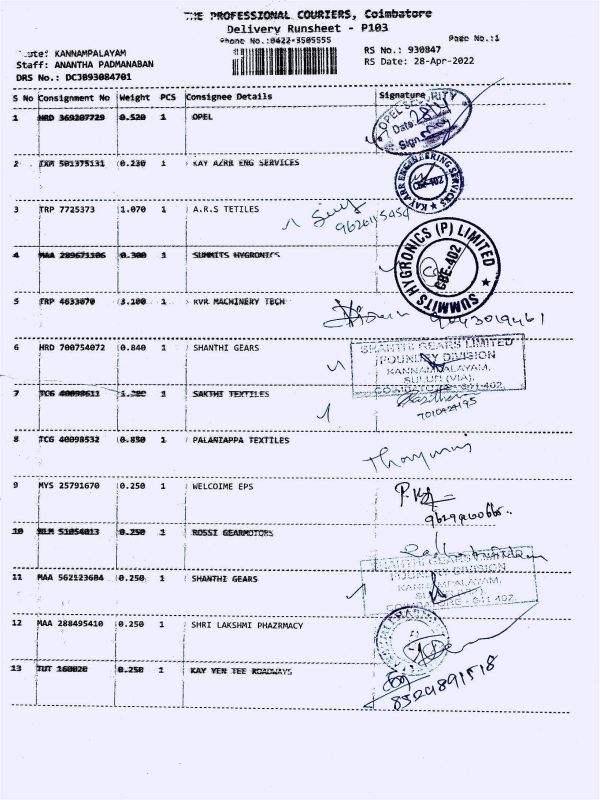 THE PROFESSIONAL COURIERS, Coimbatore
Delivery Runsheet - P103
Phone No.:0422-3505555
Page No.:1
KANNAMPALAYAM
RS No.: 930847
Staff: ANANTHA PADMANABAN
RS Date: 28-Apr-2022
DRS No.: DCJB93084701
S No Consignment No Weight PCS Consignee Details Signature
1 HRD 369207729 0.520 1 OPEL
OPEL SECURITY
Date
Sign
2 IXM 501375131 0.230 1 KAY AZRR ENG SERVICES
KAY ARR ENGINEERING SERVICES
CBE-402
3 TRP 7725373 1.070 1 A.R.S TETILES
4 MAA 289671106 0.300 1 SUMMITS HYGRONICS
SUMMITS HYGRONICS (P) LIMITED
CBE-402
5 TRP 4633070 3.100 1 KVR MACHINERY TECH
9043019461
6 HRD 700754072 0.840 1 SHANTHI GEARS
SHANTHI GEARS LIMITED
FOUNDRY DIVISION
KANNAMPALAYAM,
SULUR (VIA),
COIMBATORE - 641 402.
7 TCG 40098611 1 SAKTHI TEXTILES
8 TCG 40098532 0.850 1 PALANIAPPA TEXTILES
9 MYS 25791670 0.250 1 WELCOIME EPS
10 51054013 0.250 1 ROSSI GEARMOTORS
11 MAA 562123684 0.250 1 SHANTHI GEARS
SHANTHI GEARS
FOUNDRY DIVISION
KANNAMPALAYAM,
COIMBATORE - 641 402.
12 MAA 288495410 0.250 1 SHRI LAKSHMI PHAZRMACY
13 TUT 160820 0.250 1 KAY YEN TEE ROADWAYS